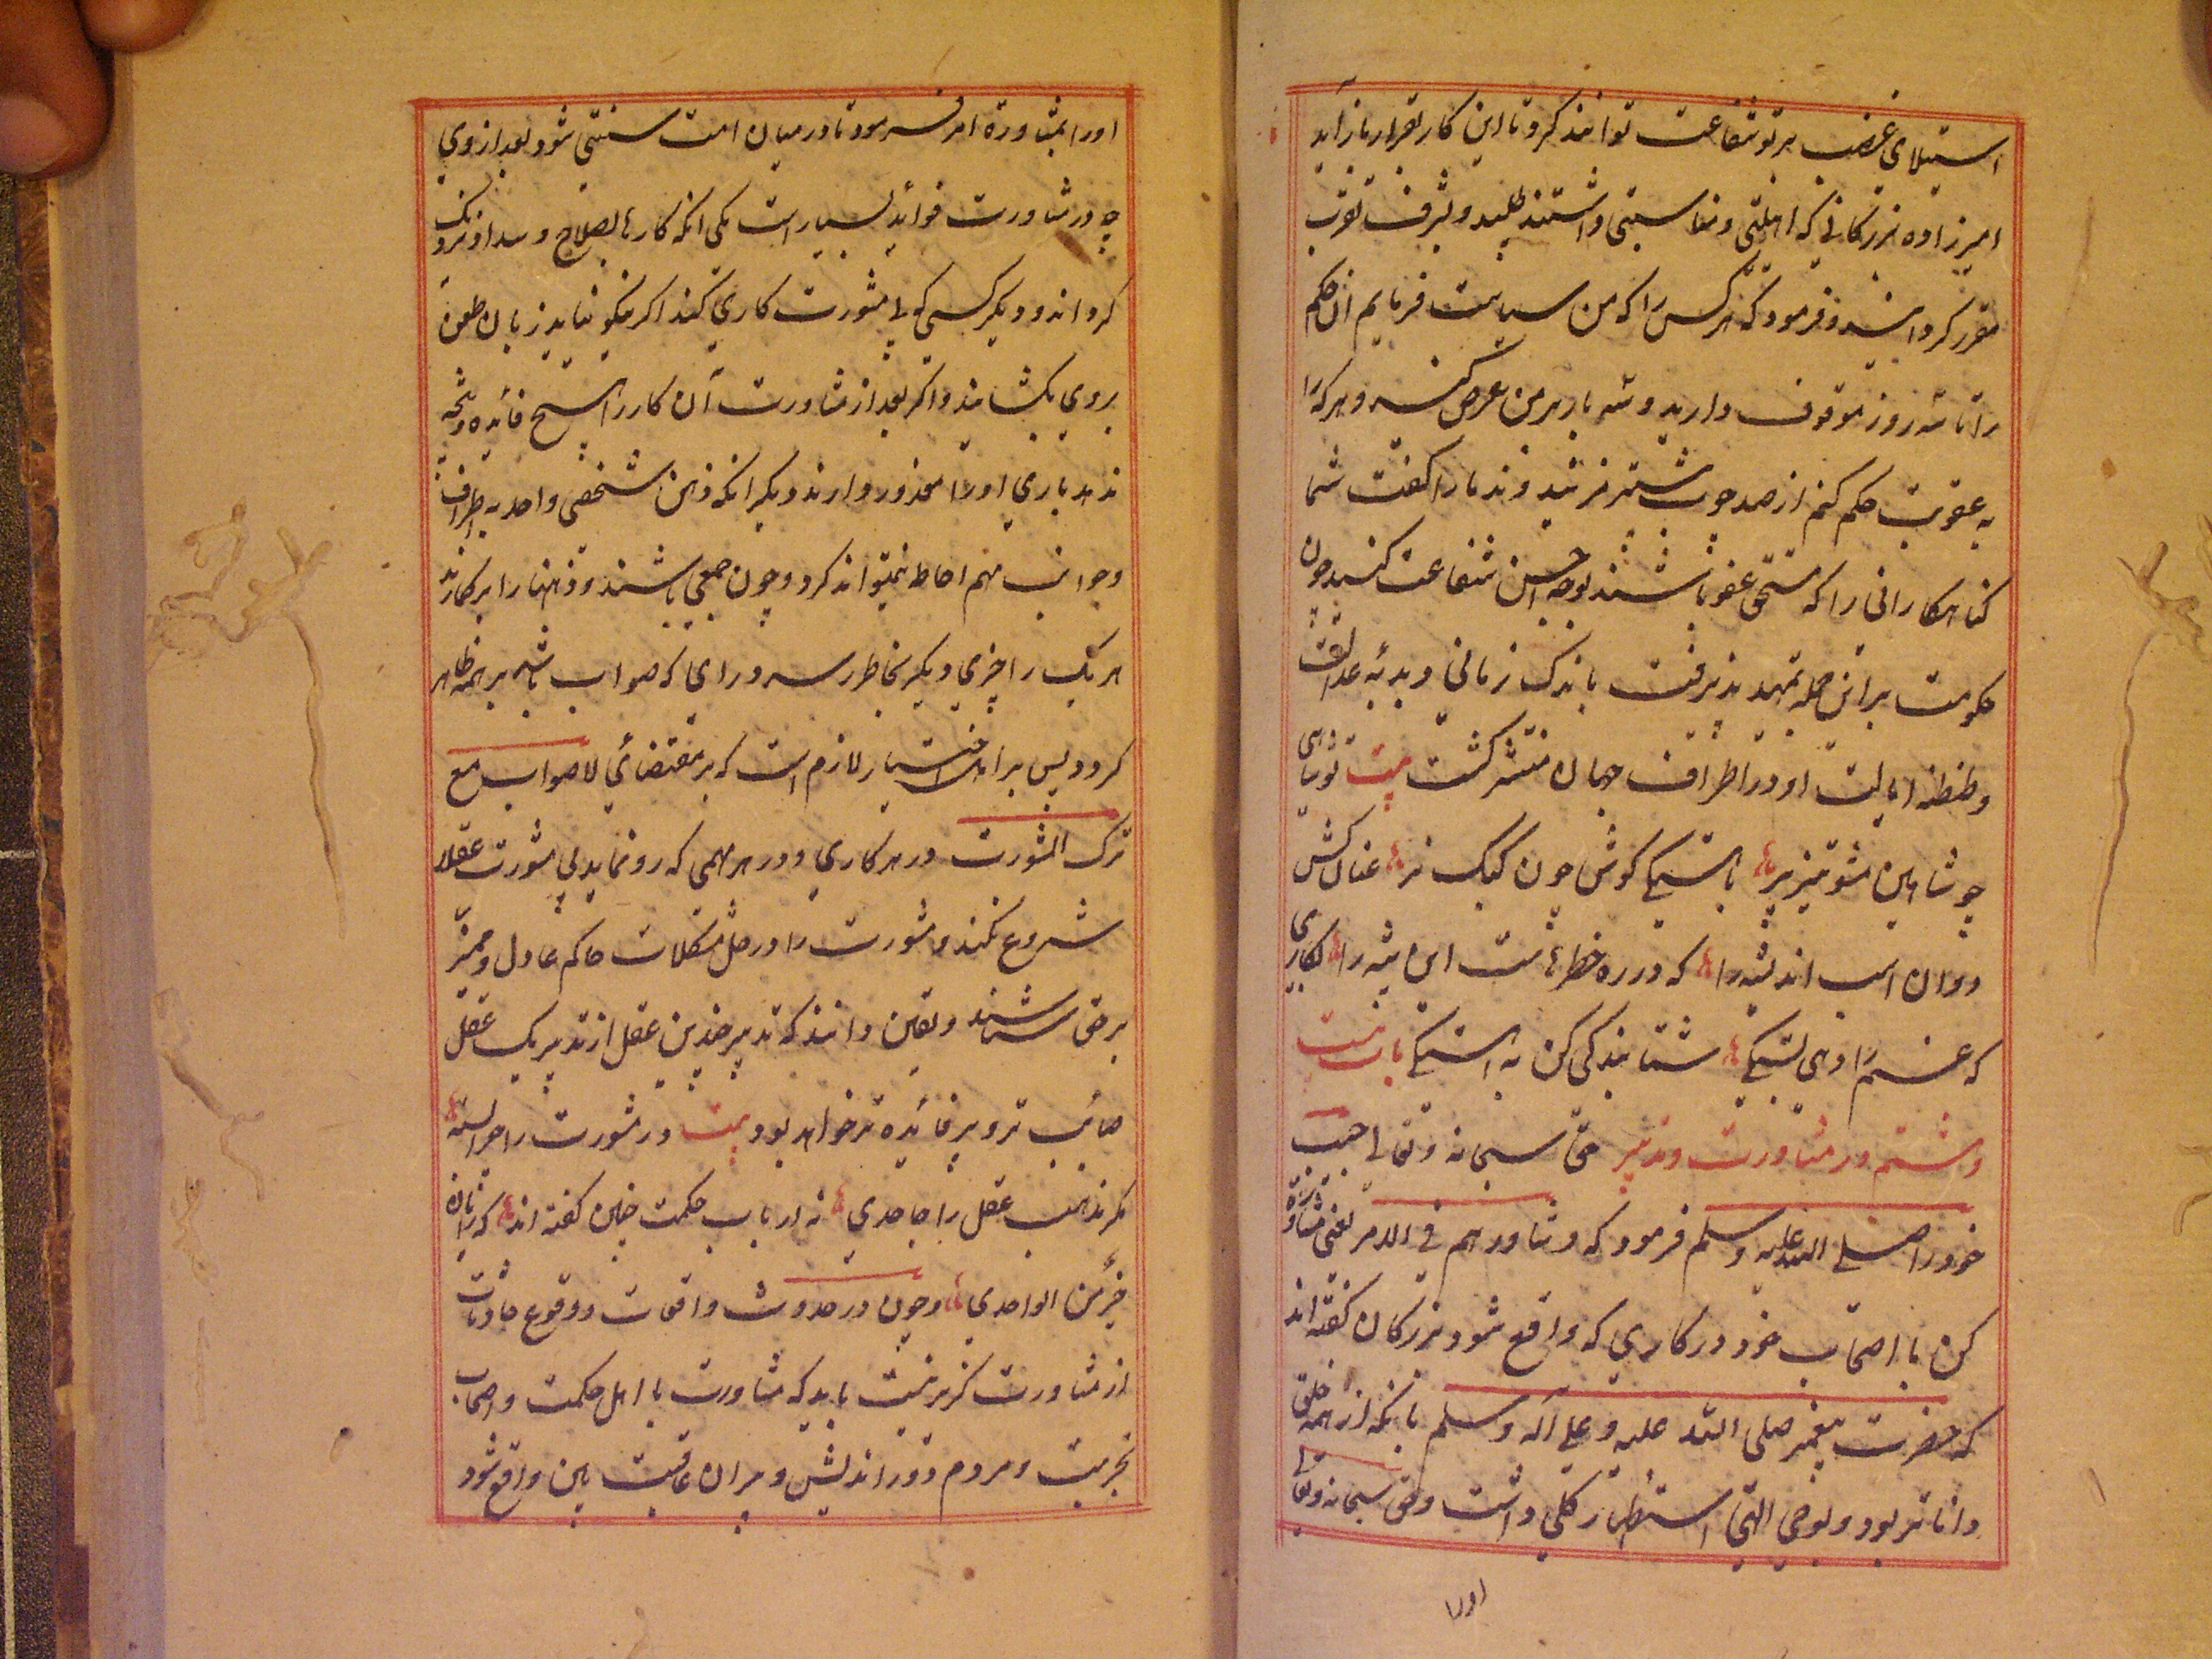 استیلای غضب بر تو شفاعت توانند کرد تا این کار بقرار باز آید
امیرزاده بزرگانی که اهلیتی و مناسبتی داشتند طلبید و بشرف تقرب
مقرر گردانید و فرمود که هر کس را که من سیاست فرمایم آن حکم
را تا سه روز موقوف دارید و سه بار بر من عرض کنید و هر کرا
به عقوبت حکم کنم از صد چوب بیشتر مزنید و ندما را گفت شما
گناهکارانی را که مستحق عفو باشند بوجه احسن شفاعت کنید چون
حکومت برین جمله تمهید پذیرفت باندک زمانی دبدبه عدالت
و طنطنه ایالت او در اطراف جهان منتشر گشت بیت توسنی
چو شاهین مشو تیز پر باهستگی کوش چون کبک نر عنان کش
دوان اسب اندیشه را که در ره خطرهاست این بیشه را بکاری
که عزم را دهی بستگی شتابندگی کن نه آهستگی باب بیست
و ششم در مشاورت و تدبیر حق سبحانه و تعالی حبیب
خود را صلی الله علیه وسلم فرمود که و شاورهم فی الامر یعنی مشاوره
کن با اصحاب خود در کاری که واقع شود بزرگان گفته اند
که حضرت پیغمبر صلی الله علیه و علی آله وسلم بآنکه از همه خلق
داناتر بود و بوحی الهی استظهار کلی داشت و حق سبحانه و تعالی
اورا
اورا بمشاوره امر فرمود تا در میان امت سنتی شود بعد از وی
چه در مشاورت فوائد بسیار است یکی انکه کارها بصلاح و سداد نزدیک
گرداند و دیگر کسی که بی مشورت کاری کند اگر نیکو نیاید زبان طعن
بروی بکشایند و اگر بعد از مشاورت آن کار را هیچ فائده و نتیجه
ندهد باری اورا معذور دارند و دیگر انکه ذهن شخصی واحد به اطراف
و جوانب مهم احاطه نمیتواند کرد و چون جمعی باشند و ذهنها را برگمارند
هر یک را چیزی دیگر بخاطر رسد و رای که صواب باشد بر همه ظاهر
گردد پس بر اهل اختیار لازم است که بر مقتضای لا صواب مع
ترک المشورت در هر کاری و در هر مهمی که رو نماید بی مشورت عقلا
شروع نکند و مشورت را در حل مشکلات حاکم عادل و ممیز
بر حق شناسند و یقین دانند که تدبیر چندین عقل از تدبیر یک عقل
صائب تر و پرفائده تر خواهد بود بیت در مشورت را چرا بسته
مگر مذهب عقل را جاحدی نه ارباب حکمت چنین گفته اند که رایان
خیر من الواحدی و چون در حدوث واقعات و وقوع حادثات
از مشاورت گزیر نیست باید که مشاورت با اهل حکمت و اصحاب
تجربت و مردم دور اندیش و پیران عاقبت بین واقع شود